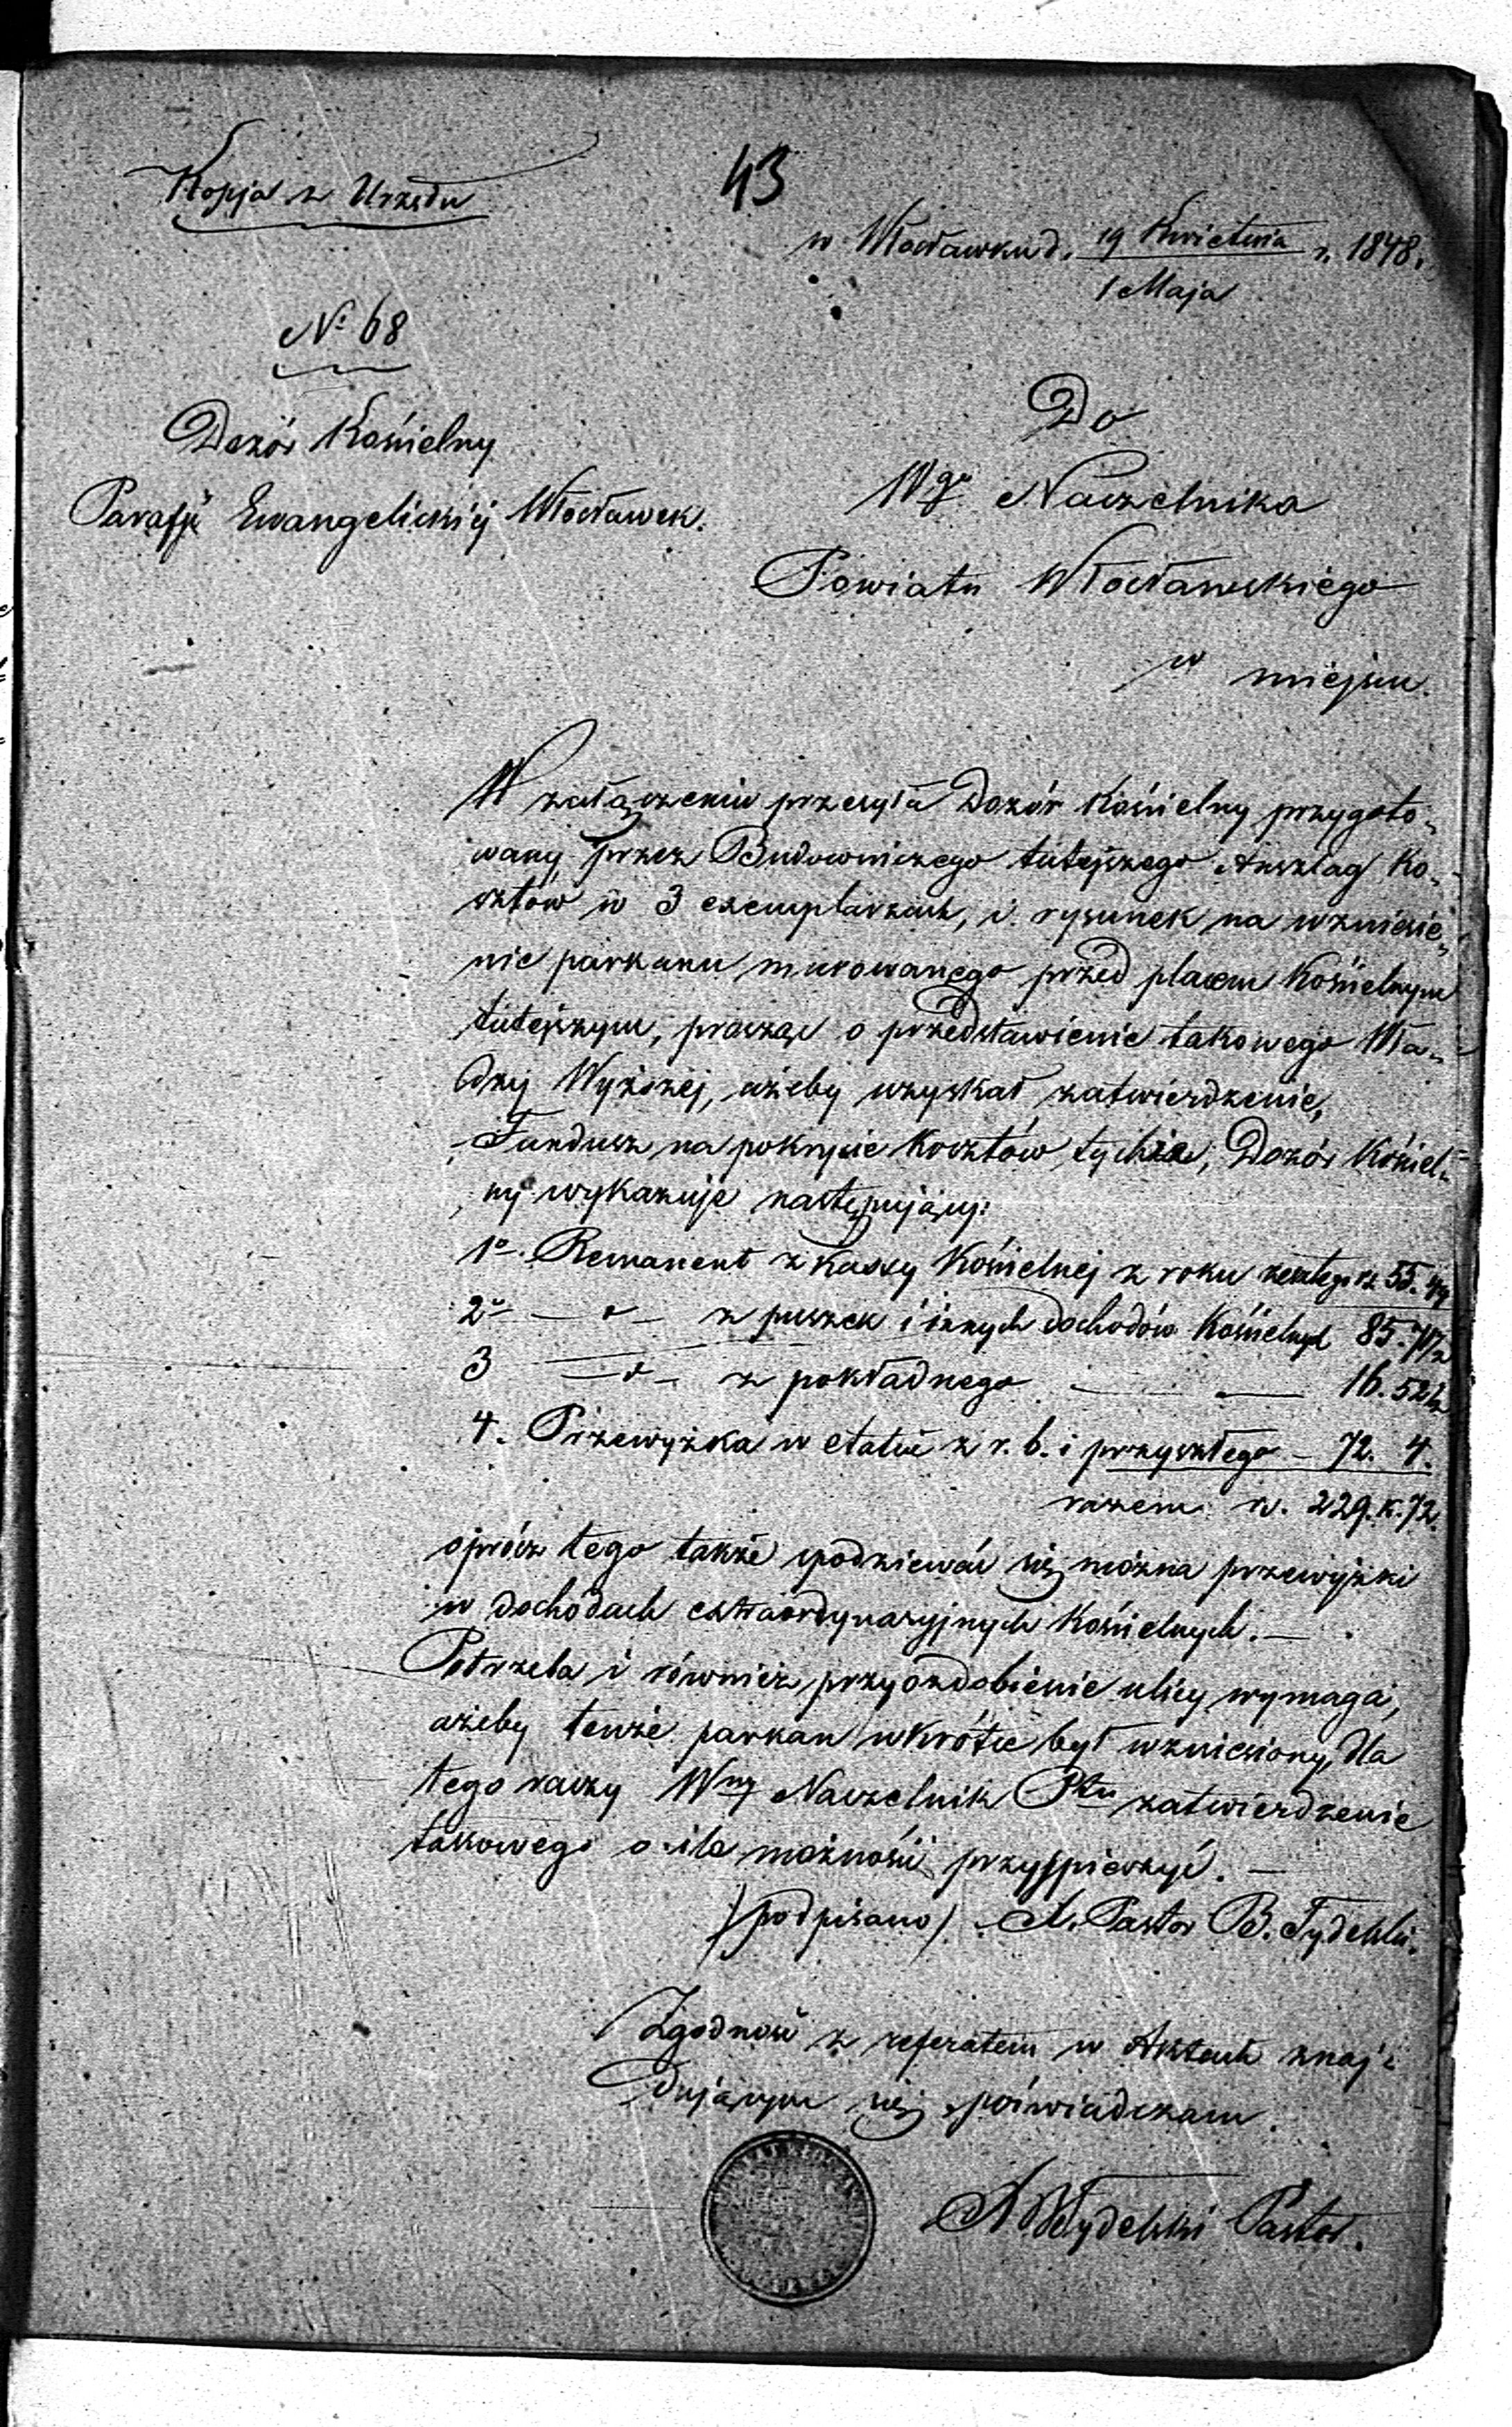 Kopja z Urzędu
43
w Włocławku d. 19 Kwietnia r. 1848.
1 Maja
No 68
Dozór Kościelny
Parafji Ewangelickiej Włocławek.
Do
Wgo Naczelnika
Powiatu Włocławskiego
w miejscu.
W załączeniu przesyła Dozór Kościelny przygoto-
wany przez Budowniczego tutejszego Anszlag Ko-
sztów w 3 exemplarzach, i rysunek na wzniesie-
nie parkanu murowanego przed placem Kościelnym
tutejszym, prosząc o przedstawienie takowego Wła-
dzy Wyższéj, ażeby uzyskał zatwierdzenie,
Fundusz na pokrycie kosztów tychże, Dozór Kościel-
ny wykazuje następujący:
1o Remanent z Kassy Kościelnéj z roku zeszłego rs 55.
2o — " — z puszek i innych dochodów Kościelnych 85.
3 — " — z pokładnego — — 16. 52½
4. Przewyżka w etacie z r. b. i przyszłego — 72. 4.
razem r. 229. k. 72.
oprócz tego także spodziewać się można przewyżki
w dochodach extraordynaryjnych Kościelnych. —
Potrzeba i również przyozdobienie ulicy wymaga,
ażeby tenże parkan wkrótce był wzniesiony, dla
tego raczy Wny Naczelnik Ptu zatwierdzenie
takowego o ile możności przyspieszyć. —
(podpisano) Pastor B.
Zgodność z referatem w Aktach znaj-
dującym się poświadczam.
Pastor.